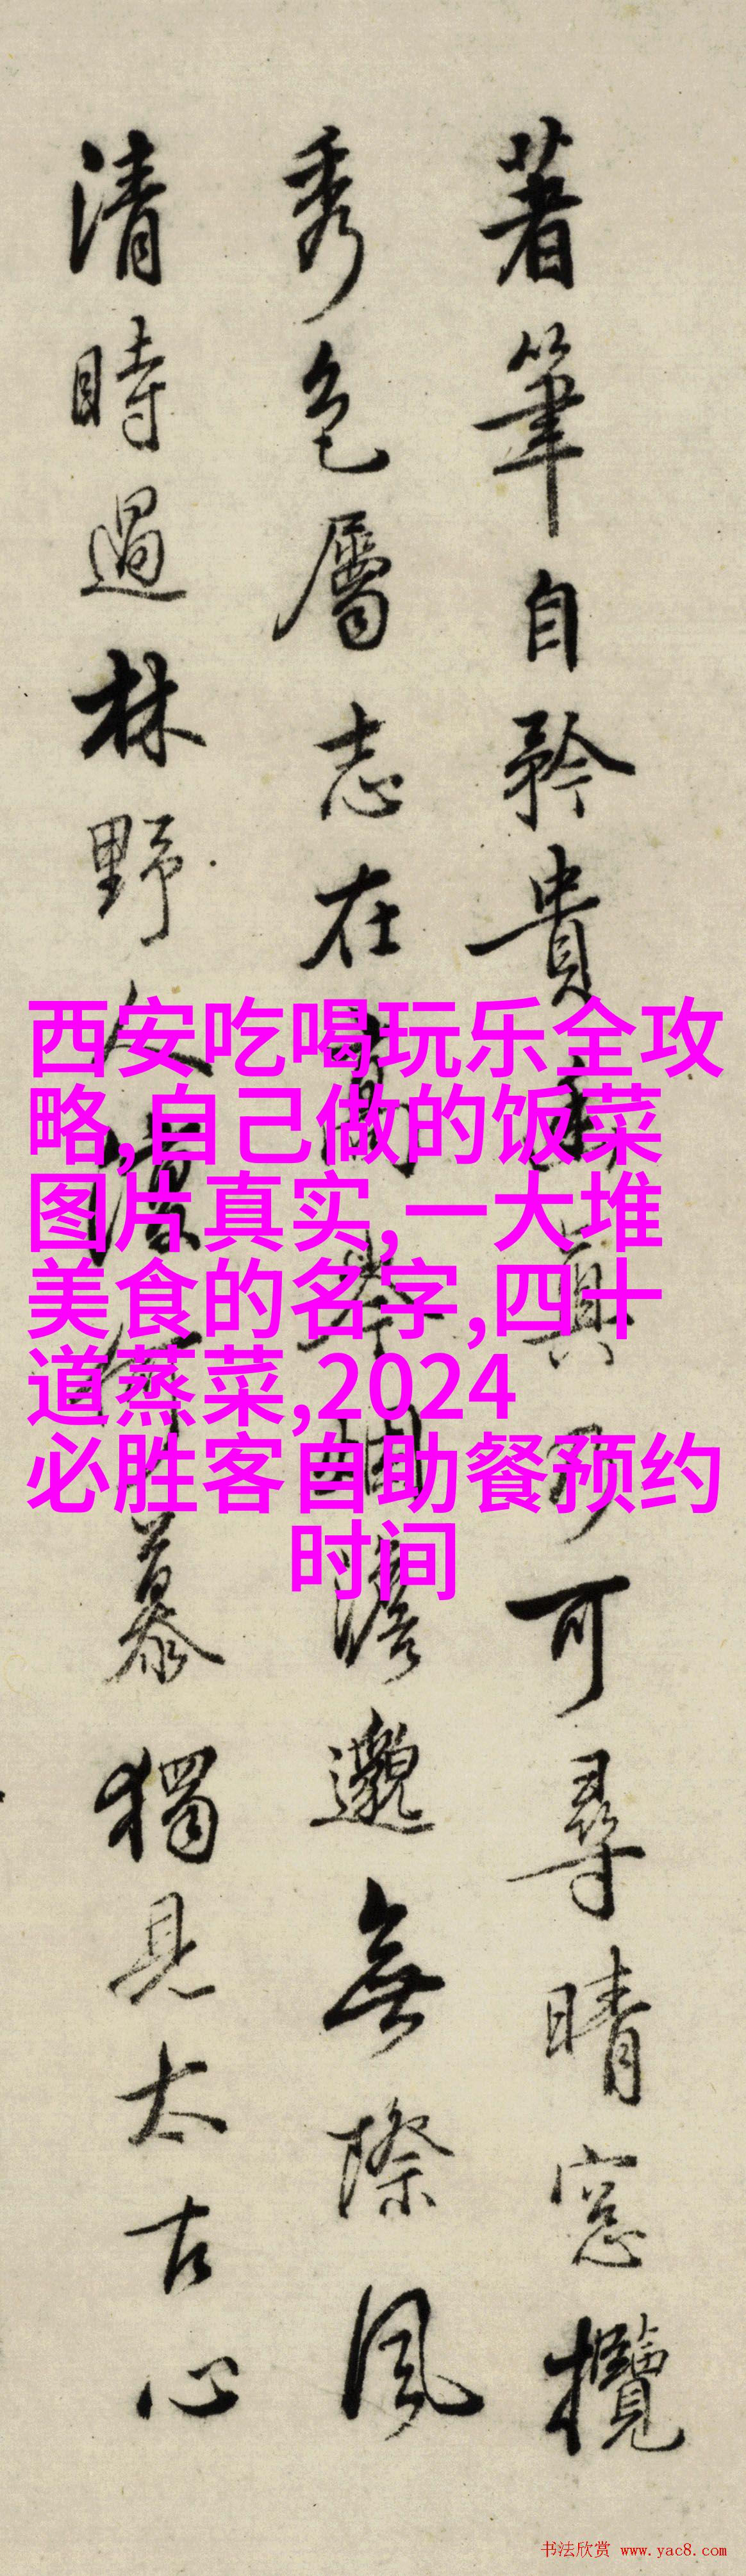 著筆自矜貴 可尋晴窓攬
秀色屬志在 澹邈無際風
清時過林野人 慕獨見太古心
西安吃喝玩乐全攻
略,自己做的饭菜
图片真实,一大堆
美食的名字,四十
道蒸菜,2024
必胜客自助餐预约
时间
书法欣赏 www.yac8.com